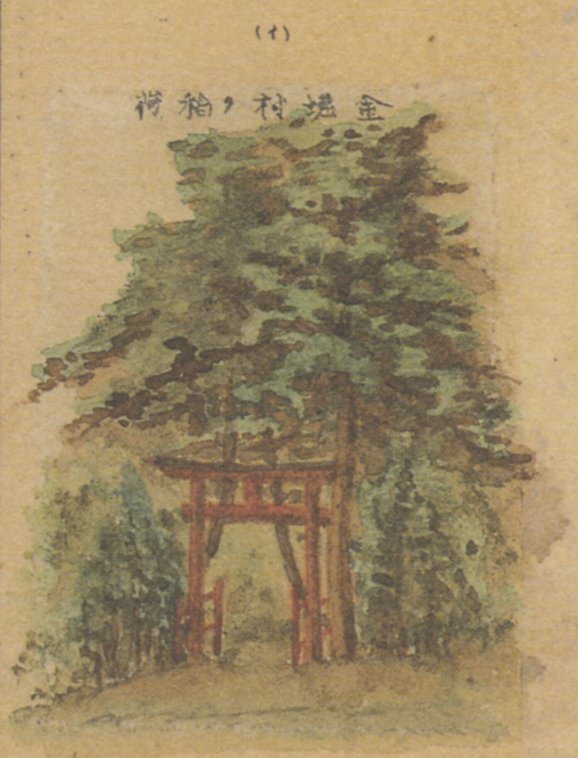 (イ)
金堀村ノ稲荷